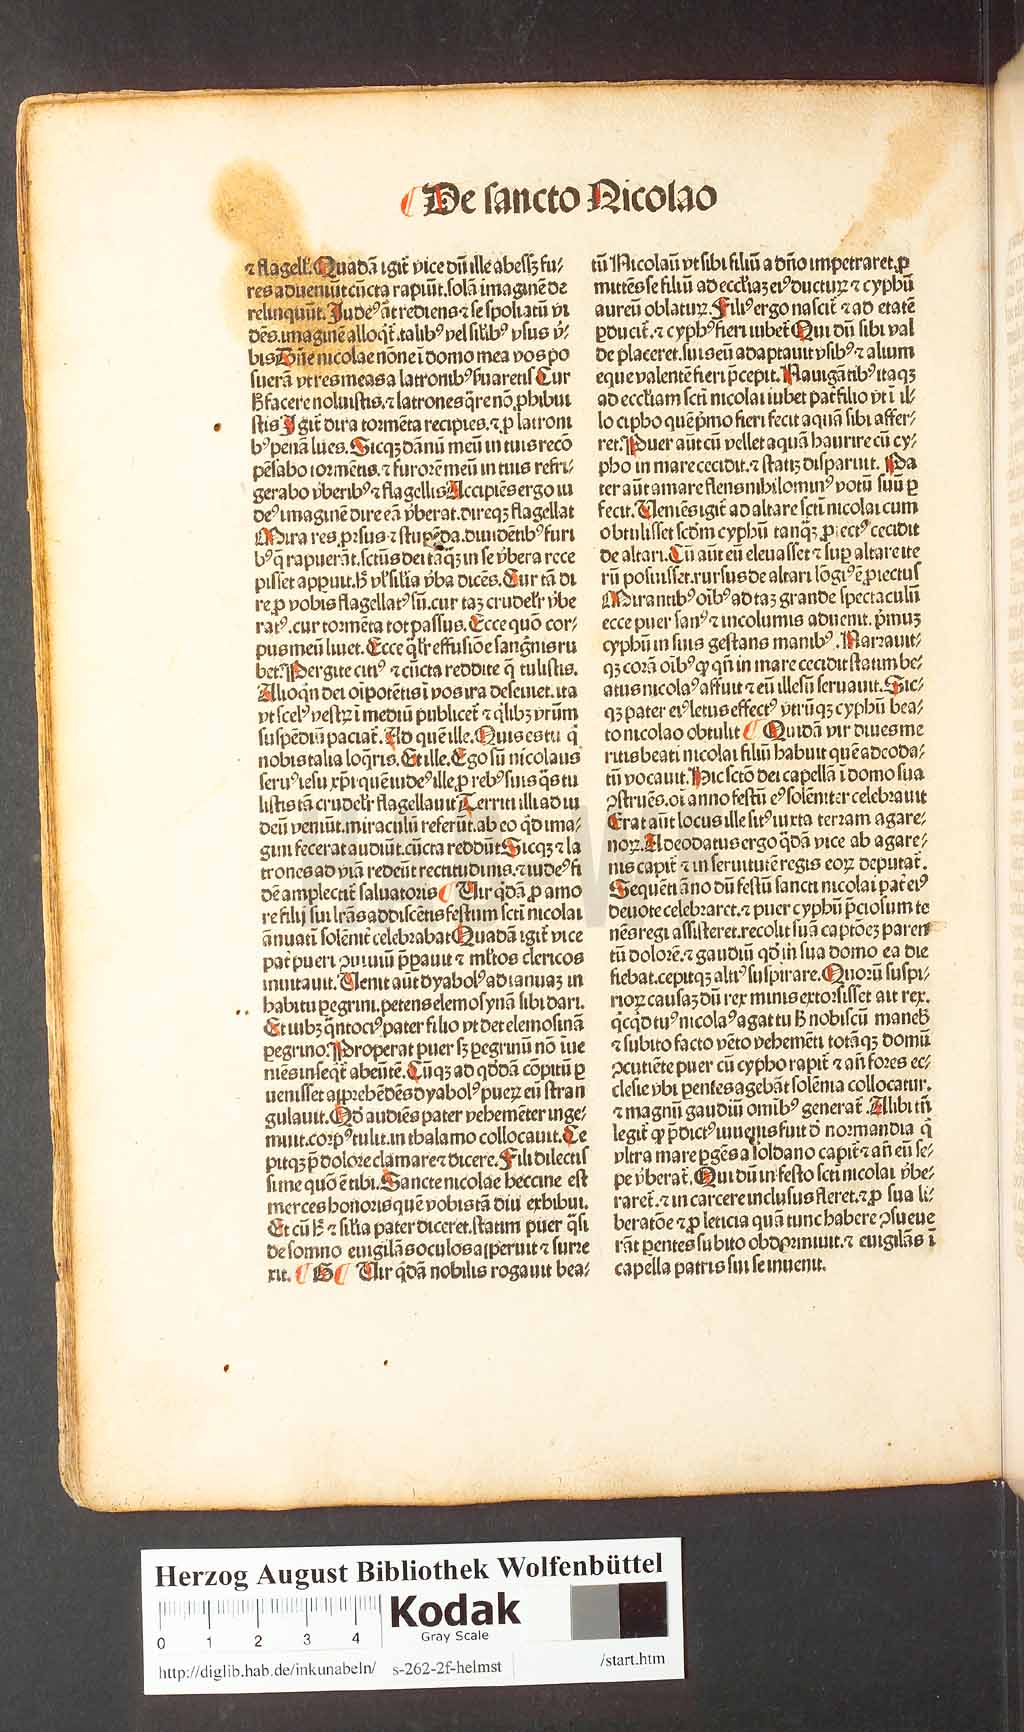 De sancto Nicolao
⁊ flagell̃. Quadã igit̃ vice dũ ille abesset fu-
res adueniũt cũcta rapiũt. solã imaginẽ de
relinquũt. Judeꝰ aũt rediens ⁊ se spoliatũ vi
dẽs. imaginẽ alloqt̃. talibꝰ vel silibꝰ vsus v̾-
bis Dñe nicolae nõne ĩ domo mea vos po
suerã vt res meas a latronibꝰ ẜuaretis Cur
hͦ facere noluistis. ⁊ latrones q̃re nõ ꝓhibui
stis Igit̃ dira tormẽta recipies. ⁊ ꝓ latroni
bꝰ penã lues. Sicqꝫ dãnũ meũ in tuis recõ
pẽsabo tormẽtis. ⁊ furorẽ meũ in tuis refri-
gerabo v̾beribꝰ ⁊ flagellis Accipiẽs ergo iu
deꝰ imaginẽ dire eã v̾berat. direqꝫ flagellat
Mira res ꝓrsus ⁊ stupẽda. diuidẽtibꝰ furi
bꝰ q̃ rapuerãt. sctũs dei tãq̃ꝫ in se v̾bera rece
pisset apꝑuit. hͦ vl̾ silia v̾ba dicẽs. Cur tã di
re ꝓ vobis flagellatꝰ sũ. cur taꝫ crudelr̾ v̾be
ratꝰ. cur tormẽta tot passus. Ecce quõ cor-
pus meũ liuet. Ecce q̃lr̾ effusiõe sangnis ru
bet. Pergite citiꝰ ⁊ cũcta reddite q̃ tulistis.
Alioqn dei oĩpotẽtis ĩ vos ira deseuiet. ita
vt scelꝰ vestꝝ ĩ mediũ publicet̃ ⁊ q̃libꝫ vr̃ũm
suspẽdiũ paciat̃. Ad quẽ ille. Quis es tu q̃
nobis talia loqris. Et ille. Ego sũ nicolaus
seruꝰ iesu xp̃i quẽ iudeꝰ ille ꝓ rebꝰ suis q̃s tu
listis tã crudelr̾ flagellauit Territi illi ad iu
deũ veniũt. miraculũ referũt. ab eo qd̾ ima-
gini fecerat audiũt. cũcta reddũt Sicqꝫ ⁊ la
trones ad viã redeũt rectitudinis. ⁊ iudeꝰ fi
dẽ amplectit̃ saluatoris Vir q̃dã ꝓ amo
re filij sui lr̃as addiscẽtis festum scti nicolai
ãnuati solẽnit̾ celebrabat Quadã igit̃ vice
pat̾ pueri ↄuiuiũ p̃pauit ⁊ ml̾tos clericos
inuitauit. Venit aũt dyabolꝰ ad ianuaꝫ in
habitu pegrini. petens elemosynã sibi dari.
Et iubꝫ q̃ntociꝰ pater filio vt det elemosinã
ꝑegrino. Properat puer sꝫ ꝑegrinũ nõ ĩue
niẽs insequit̃ abeũtẽ. Cũqꝫ ad qd̾dã cõpitũ ꝑ
uenisset apprehẽdẽs dyabolꝰ pueꝝ eũ stran
gulauit. Qd̾ audiẽs pater vehemẽter inge-
muit. corpꝰ tulit. in thalamo collocauit. Ce
pitqꝫ p̃ dolore clamare ⁊ dicere. Fili dilectis
sime quõ ẽ tibi. Sancte nicolae heccine est
merces honoris quẽ vobis tã diu exhibui.
Et cũ hͦ ⁊ silia pater diceret. statim puer q̃si
de somno euigilãs oculos aperuit ⁊ surre
xit. G Vir q̃dã nobilis rogauit bea-
tũ Nicolaũ vt sibi filiũ a dño impetraret. ꝓ
mittẽs se filiũ ad eccliaꝫ eiꝰ ductuꝝ ⁊ cyphũ
aureũ oblatuꝝ. Filiꝰ ergo nascit̃ ⁊ ad etatẽ
ꝑducit̃. ⁊ cyphꝰ fieri iubet̃ Qui dũ sibi val
de placeret. suis eũ adaptauit vsibꝰ ⁊ alium
eque valentẽ fieri p̃cepit. Nauigãtibꝰ itaqꝫ
ad eccliam scti nicolai iubet pat̾ filio vt ĩ il-
lo cipho quẽ p̾mo fieri fecit aquã sibi affer-
ret. Puer aũt cũ vellet aquã haurire cũ cy-
pho in mare cecidit. ⁊ statĩ disparuit. Pa
ter aũt amare flens nihilominꝰ votũ suũ ꝑ
fecit. Veniẽs igit̃ ad altare scti nicolai cum
obtulisset scdm cyphũ tanq̃ꝫ ꝓiectꝰ cecidit
de altari. Cũ aũt eũ eleuasset ⁊ suꝑ altare ite
rũ posuisset. rursus de altari lõgiꝰ ẽ ꝓiectus
Mirantibꝰ oĩbꝰ ad taꝫ grande spectaculũ
ecce puer sanꝰ ⁊ incolumis aduenit. p̾muꝫ
cyphũ in suis gestans manibꝰ. Narrauit-
qꝫ corã oĩbꝰ ꝙ qñ in mare cecidit statim be-
atus nicolaꝰ affuit ⁊ eũ illesũ seruauit. Sic-
qꝫ pater eiꝰ letus effectꝰ vtrũqꝫ cyphũ bea-
to nicolao obtulit Quidã vir diues me
ritis beati nicolai filiũ habuit quẽ adeoda-
tũ vocauit. Hic sctõ dei capellã ĩ domo sua
ↄstruẽs. oĩ anno festũ eꝰ solẽniter celebrauit
Erat aũt locus ille sitꝰ iuxta terram agare-
noꝝ. Adeodatus ergo q̃dã vice ab agare-
nis capit̃ ⁊ in seruitutẽ regis eoꝝ deputat̃.
Sequẽti ãno dũ festũ sancti nicolai pat̾ eiꝰ
deuote celebraret. ⁊ puer cyphũ p̃ciosum te
nẽs regi assisteret. recolit suã captõeꝫ paren
tũ dolorẽ. ⁊ gaudiũ qd̾ in sua domo ea die
fiebat. cepitqꝫ altiꝰ suspirare. Quorũ suspi-
rioꝝ causaꝫ dũ rex minis extorsisset ait rex.
q̃cq̃d tuꝰ nicolaꝰ agat tu hͦ nobiscũ manebͦ
⁊ subito facto vẽto vehemẽti totãqꝫ domũ
ↄcutiẽte puer cũ cypho rapit̃ ⁊ añ fores ec-
clesie vbi pẽntes agebãt solẽnia collocatur.
⁊ magnũ gaudiũ omĩbꝰ generat̃. Alibi tñ
legit̃ ꝙ p̃dictꝰ iuuẽis fuit d̾ normandia q̃
vltra mare pergẽs a soldano capit̃ ⁊ añ eũ se-
pe v̾berat̃. Qui dũ in festo scti nicolai v̾be-
raret̃. ⁊ in carcere inclusus fleret. ⁊ ꝓ sua li-
beratõe ⁊ ꝓ leticia quã tunc habere ↄsueue
rãt ꝑentes subito obdormiuit. ⁊ euigilãs ĩ
capella patris sui se inuenit.
Herzog August Bibliothek Wolfenbüttel
0 1 2 3 4
Kodak
Gray Scale
http://diglib.hab.de/inkunabeln/ s-262-2f-helmst /start.htm